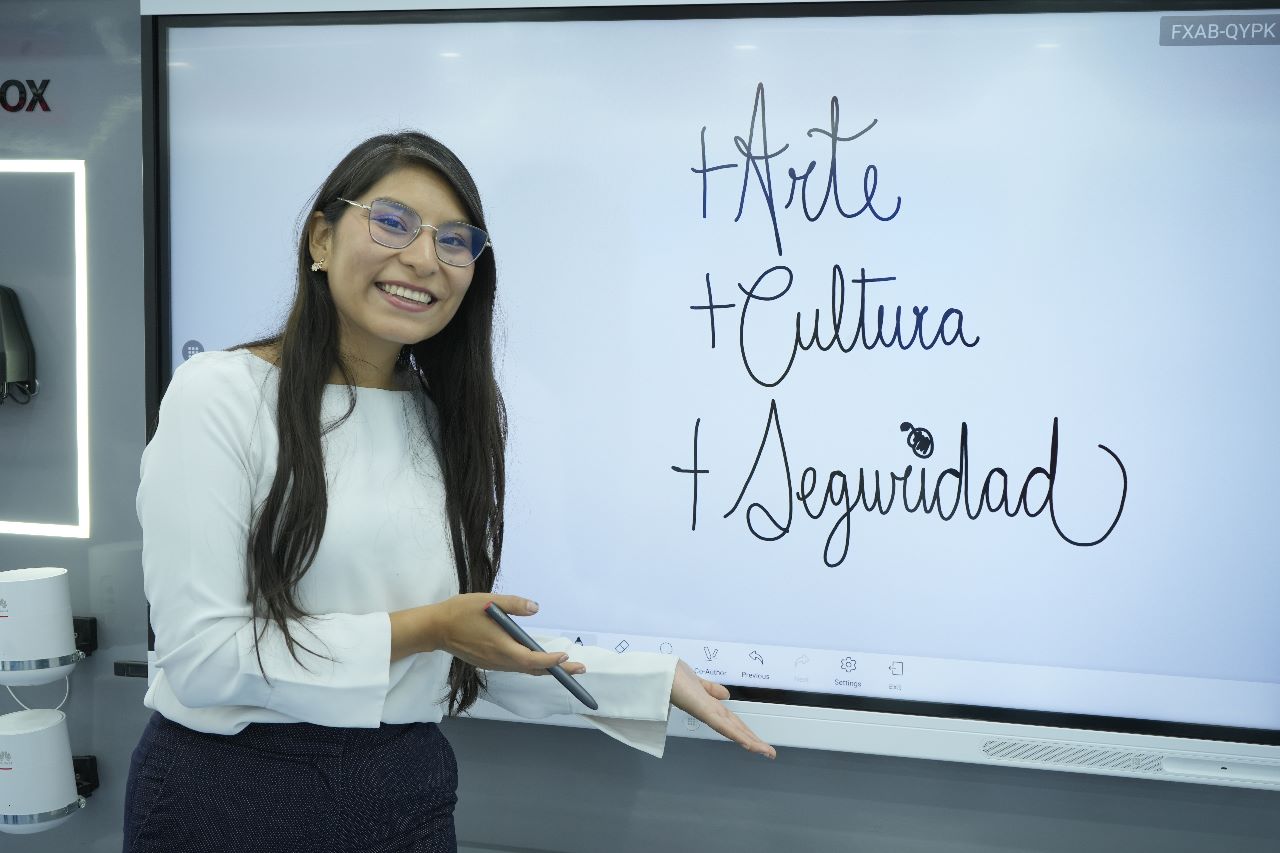 FXAB-QYPK
OX
+Arte
+Cultura
+Seguridad
Co-Author Previous Next Settings Exit